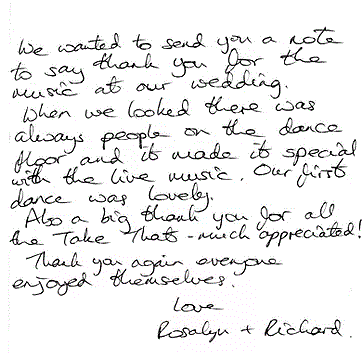 We wanted to send you a note
to say thank you for the
music at our wedding.
When we looked there was
always people on the dance
floor and it made it special
with the live music. Our first
dance was lovely.
Also a big thank you for all
the Take Thats - much appreciated!
Thank you again everyone
enjoyed themselves.
Love
Rosalyn + Richard.